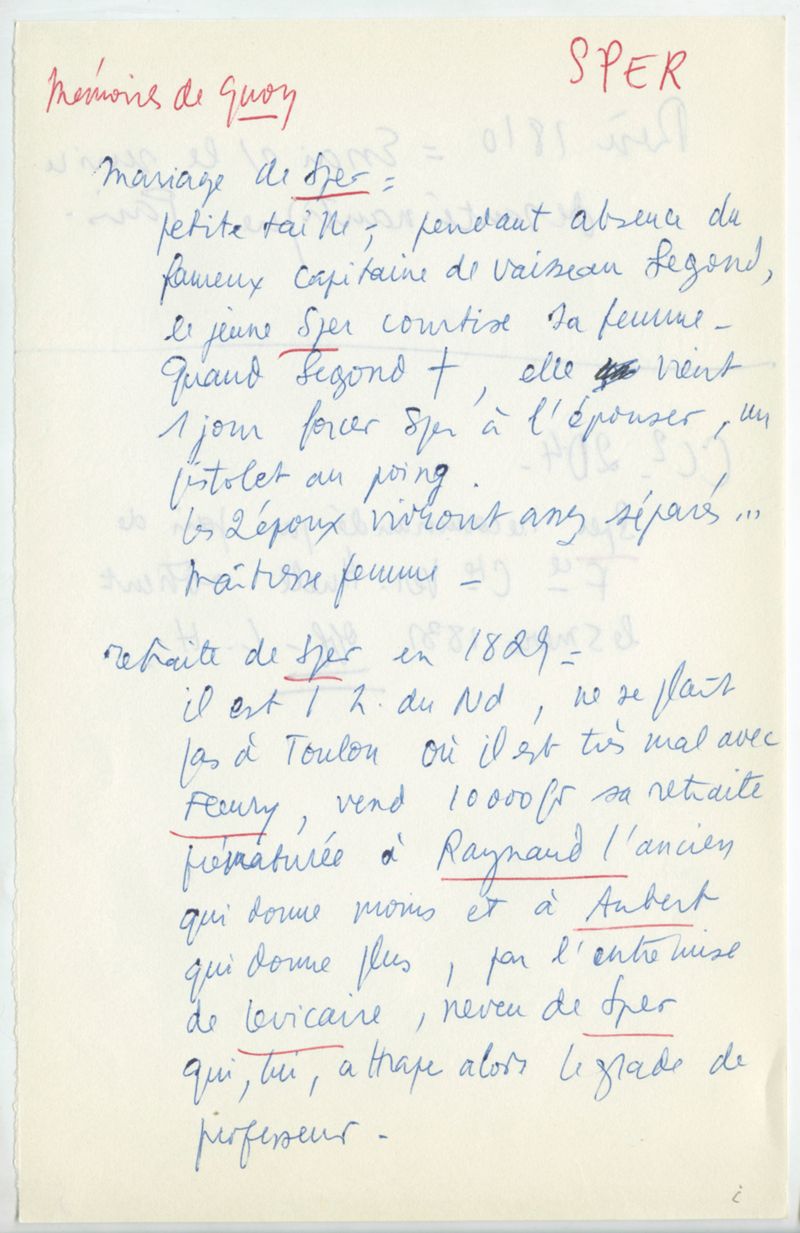 SPER
Mémoires de Quoy
Mariage de Sper =
petite taille ; pendant absence du
fameux capitaine de vaisseau Segond,
le jeune Sper courtise sa femme -
Quand Segond †, elle vient
1 jour forcer Sper à l'épouser, un
pistolet au poing.
les 2 époux vivront assez séparés...
Maîtresse femme -
retraite de Sper en 1829 =
il est 1 h. du Nd, ne se plaît
pas à Toulon où il est très mal avec
Fleury, vend 10000 fr sa retraite
prématurée à Raynaud l'ancien
qui donne moins et à Aubert
qui donne plus, par l'entremise
de Levicaire, neveu de Sper
qui, lui, attrape alors le grade de
professeur -
i